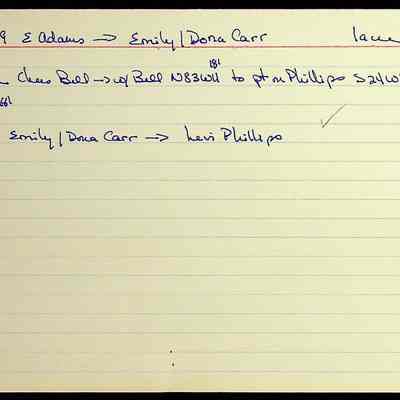 9 E Adams → Emily/Dora Carr
Chas Bull → w/ Bull N83W11 to pt on Phillips S24W
181
Emily/Dora Carr → Levi Phillips